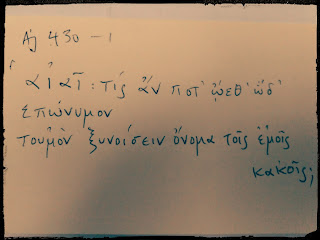 Aj 430-1
αἰαῖ: τίς ἄν ποτ' ᾤεθ' ὧδ'
ἐπώνυμον
τοὐμὸν ξυνοίσειν ὄνομα τοῖς ἐμοῖς
κακοῖς;